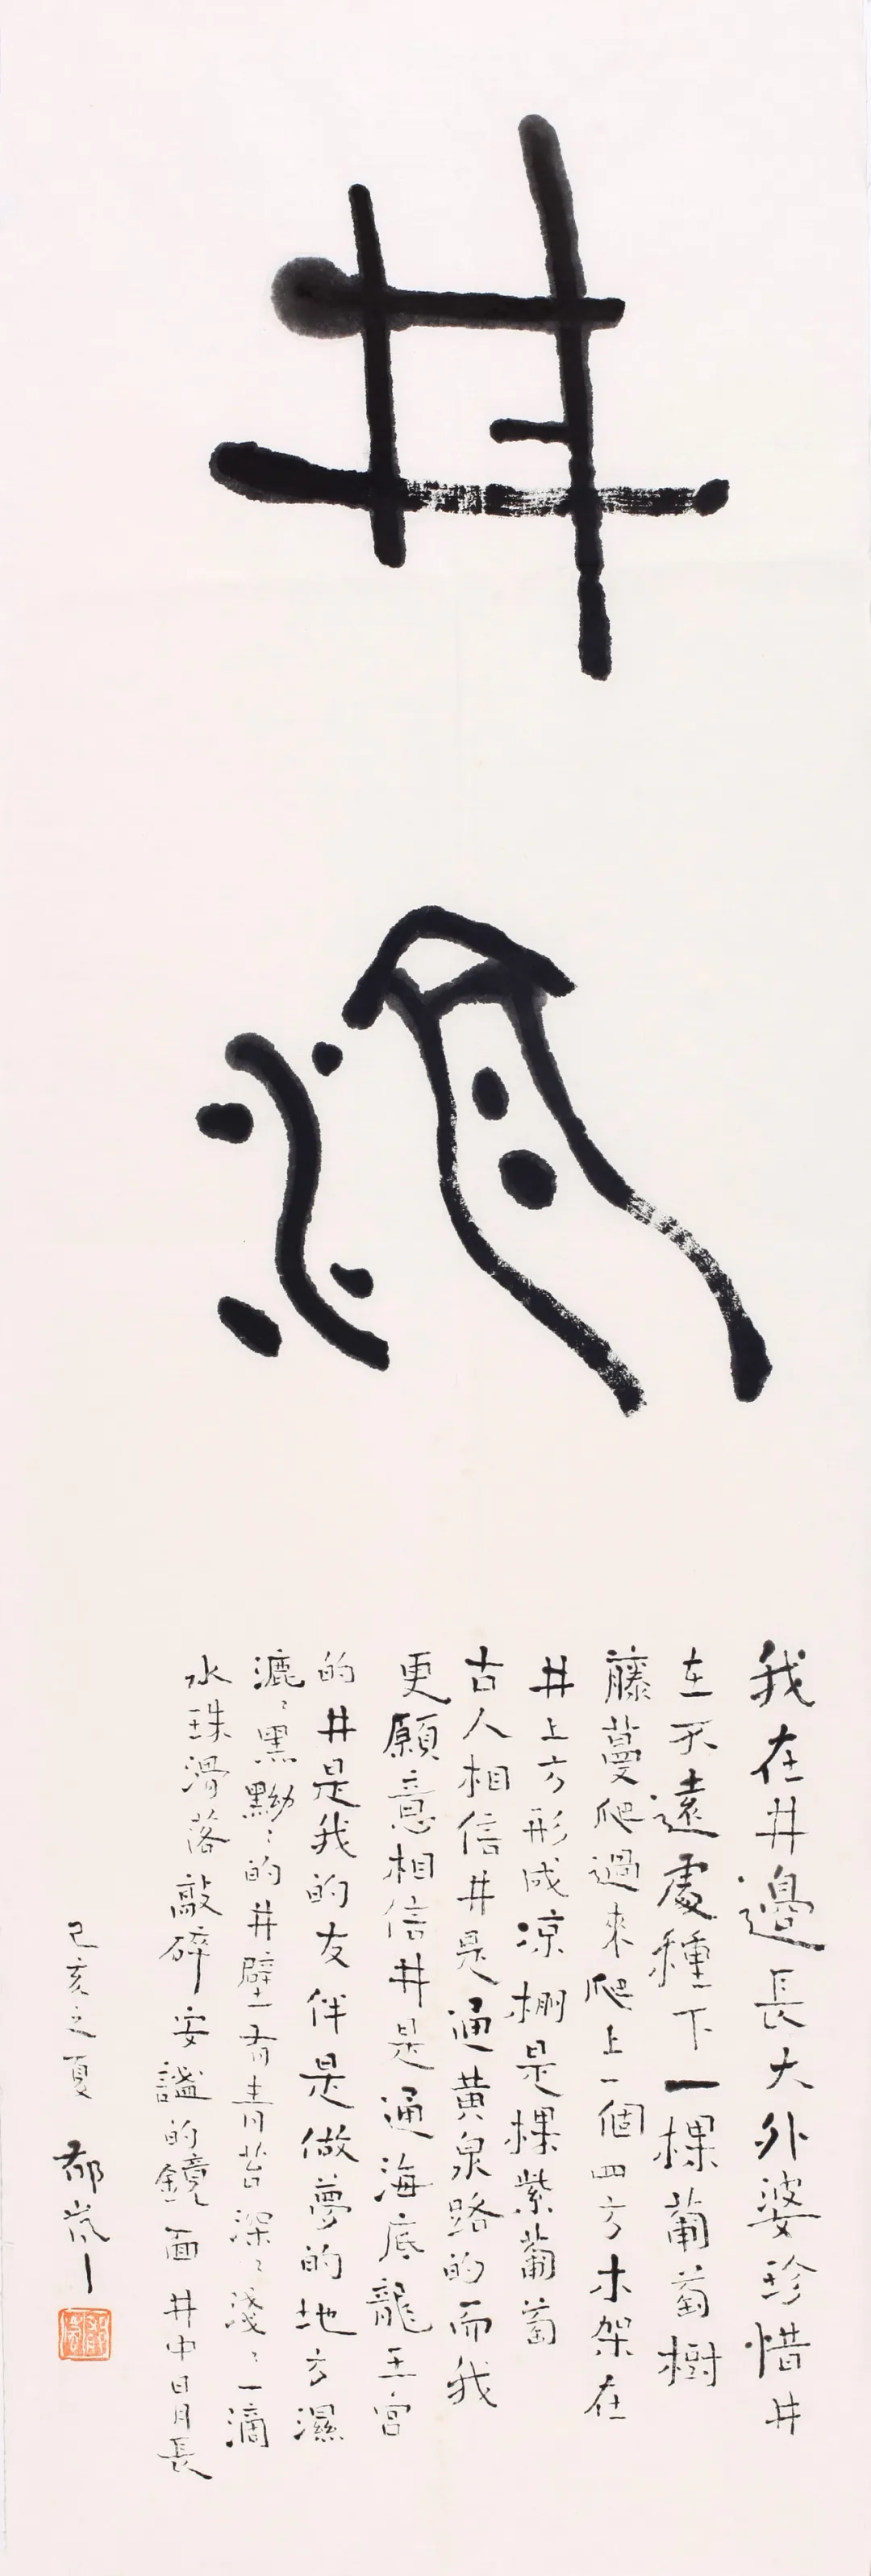 井
我在井邊長大外婆珍惜井
在不遠處種下一棵葡萄樹
藤蔓爬過來爬上一個四方木架在
井上方形成涼棚是棵紫葡萄
古人相信井是通黃泉路的而我
更願意相信井是通海底龍王宮
的井是我的友伴是做夢的地方濕
漉〻黑黝〻的井壁有青苔深〻淺〻一滴
水珠滑落敲碎安謐的鏡面井中日月長
己亥之夏 郁嵐